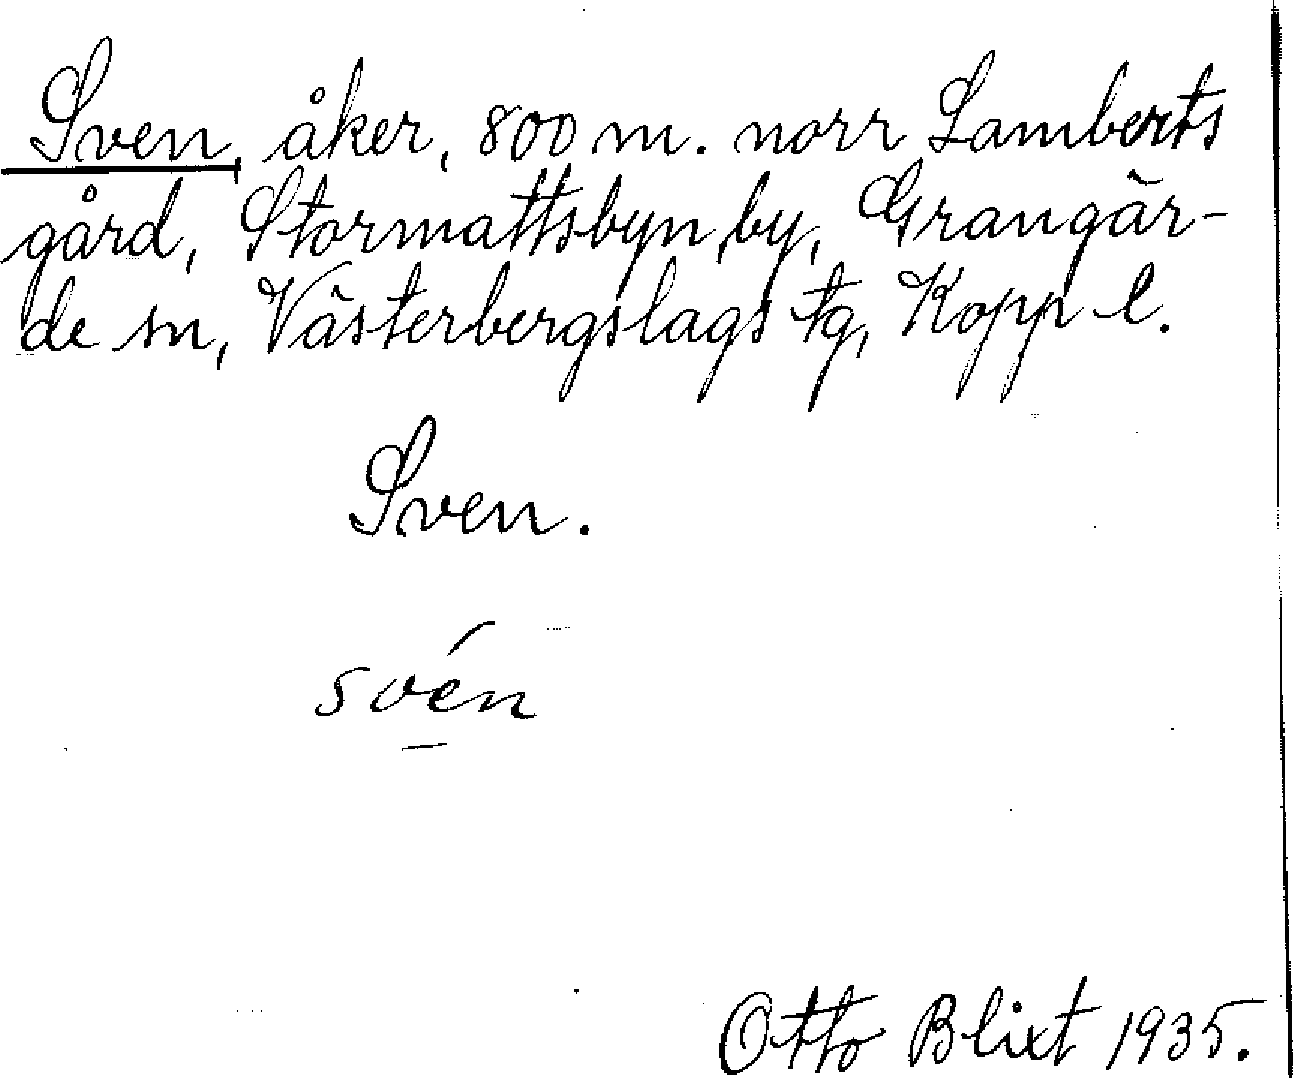 Sven, åker, 800 m. norr Lamberts
gård, Stormattsbyn, by, Grangär-
de sn, Västerbergslags tg, Kopp l.
Sven.
svén
Otto Blixt 1935.